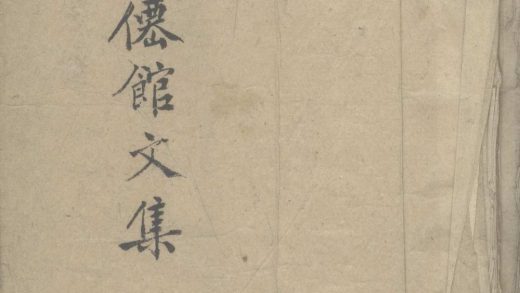 僊館文集